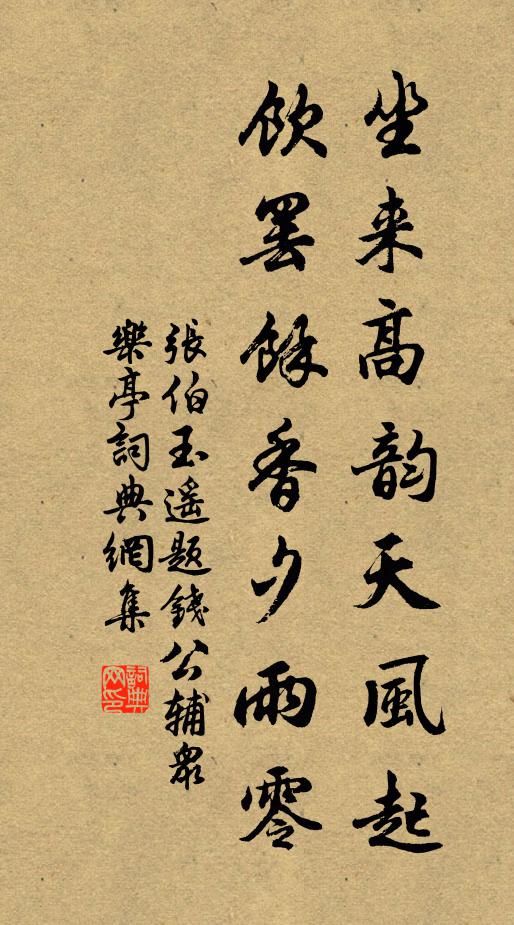 坐来高韵天風起
飲罢餘香夕雨零
張伯玉遥题錢公輔眾
樂亭詞典網集
詞典网印